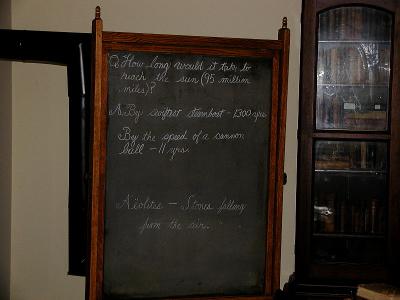 Q. How long would it take to
reach the sun (95 million
miles)?
A. By swiftest steamboat - 1300 yrs
By the speed of a cannon
ball - 11 yrs.
Aëolites - Stones falling
from the air.